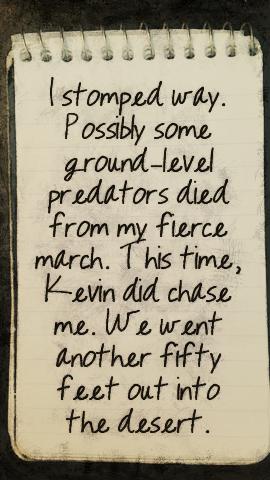 I stomped way.
Possibly some
ground-level
predators died
from my fierce
march. This time,
Kevin did chase
me. We went
another fifty
feet out into
the desert.